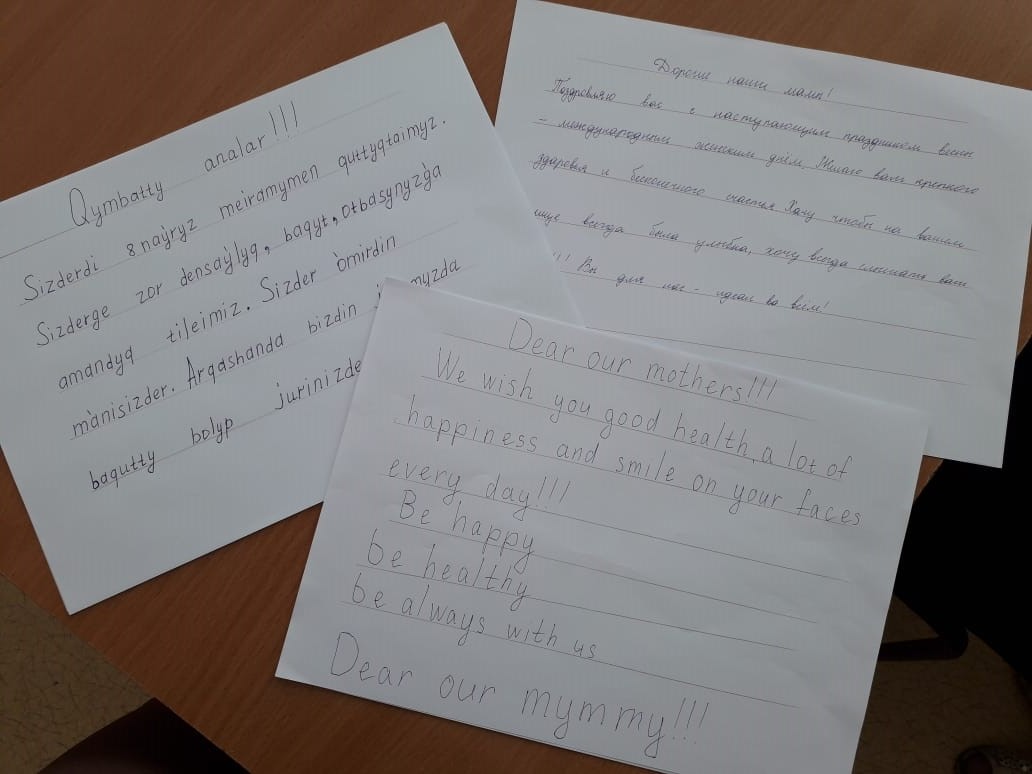 Qymbatty analar!!!
Sizderdi 8 naýryz meiramymen quttyqtaimyz.
Sizderge zor densaýlyq, baqyt, otbasynyzǵa
amandyq tileimiz. Sizder ómirdin
mánisizder. Arqashanda bizdin myzda
baqutty bolyp jurinizde
Дорогие наши мамы!
Поздравляю вас с наступающим праздником весны
- международным женским днём. Желаю вам крепкого
здоровья и бесконечного счастья. Хочу чтобы на вашем
лице всегда была улыбка, хочу всегда слышать ваш
!!! Вы для нас - идеал во всём!
Dear our mothers!!!
We wish you good health, a lot of
happiness and smile on your faces
every day!!!
Be happy
be healthy
be always with us
Dear our mymmy!!!